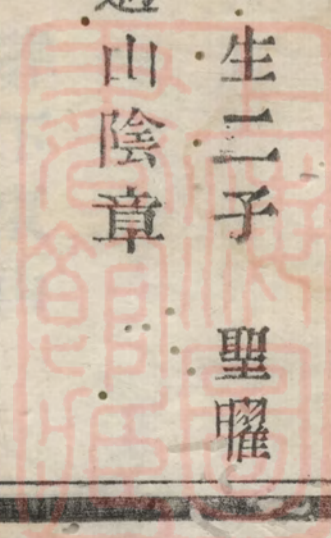 生二子　聖曜
適山陰章